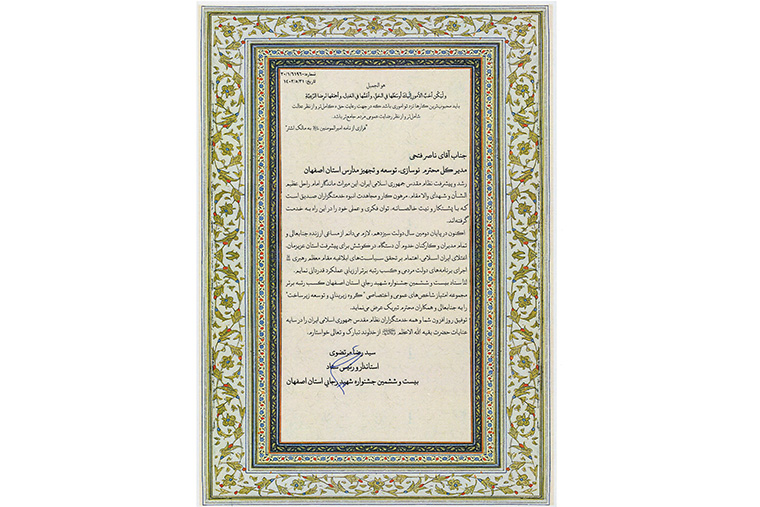 هو الجمیل
شماره: ۲۰/۱/۶۱۹۶۰
تاریخ: ۱۴۰۲/۸/۲۱
ولیکن احب الامور الیک اوسطها فی الحق، و اعمها فی العدل، و اجمعها لرضا الرعیة
باید محبوب‌ترین کارها نزد تو اموری باشد که در جهت رعایت حق، کامل‌تر و از نظر عدالت
شامل‌تر و از نظر رضایت عمومی مردم جامع‌تر باشد.
"فرازی از نامه امیرالمومنین به مالک اشتر"
جناب آقای ناصر فتحی
مدیر کل محترم نوسازی، توسعه و تجهیز مدارس استان اصفهان
رشد و پیشرفت نظام مقدس جمهوری اسلامی ایران، این میراث ماندگار امام راحل عظیم
الشأن و شهدای والامقام، مرهون کار و مجاهدت انبوه خدمتگزاران صدیق است
که با پشتکار و نیت خالصانه، توان فکری و عملی خود را در این راه به خدمت
گرفته‌اند.
اکنون در پایان دومین سال دولت سیزدهم، لازم می‌دانم از مساعی ارزنده جنابعالی و
تمام مدیران و کارکنان خدوم آن دستگاه، در کوشش برای پیشرفت استان عزیزمان،
اعتلای ایران اسلامی، اهتمام بر تحقق سیاست‌های ابلاغیه مقام معظم رهبری
اجرای برنامه‌های دولت مردمی و کسب رتبه برتر ارزیابی عملکرد قدردانی نمایم.
لذا ستاد بیست و ششمین جشنواره شهید رجایی استان اصفهان کسب رتبه برتر
مجموع امتیاز شاخص‌های عمومی و اختصاصی "گروه زیربنایی و توسعه زیرساخت"
را به جنابعالی و همکاران محترم تبریک عرض می‌نماید.
توفیق روز افزون شما و همه خدمتگزاران نظام مقدس جمهوری اسلامی ایران را در سایه
عنایات حضرت بقیه الله الاعظم از خداوند تبارک و تعالی خواستارم.
سید رضا مرتضوی
استاندار و رئیس ستاد
بیست و ششمین جشنواره شهید رجایی استان اصفهان